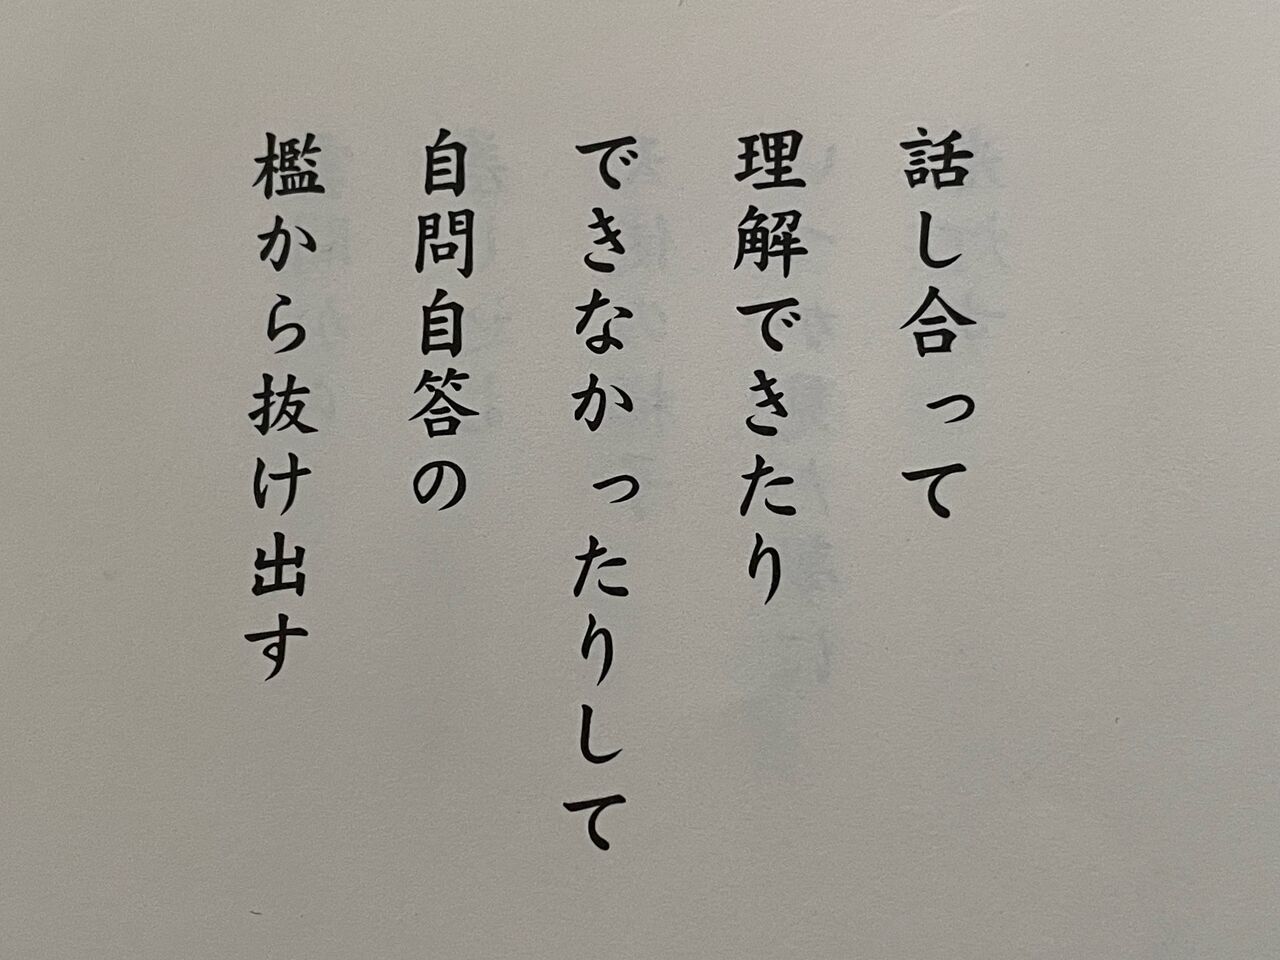 話し合って
理解できたり
できなかったりして
自問自答の
檻から抜け出す